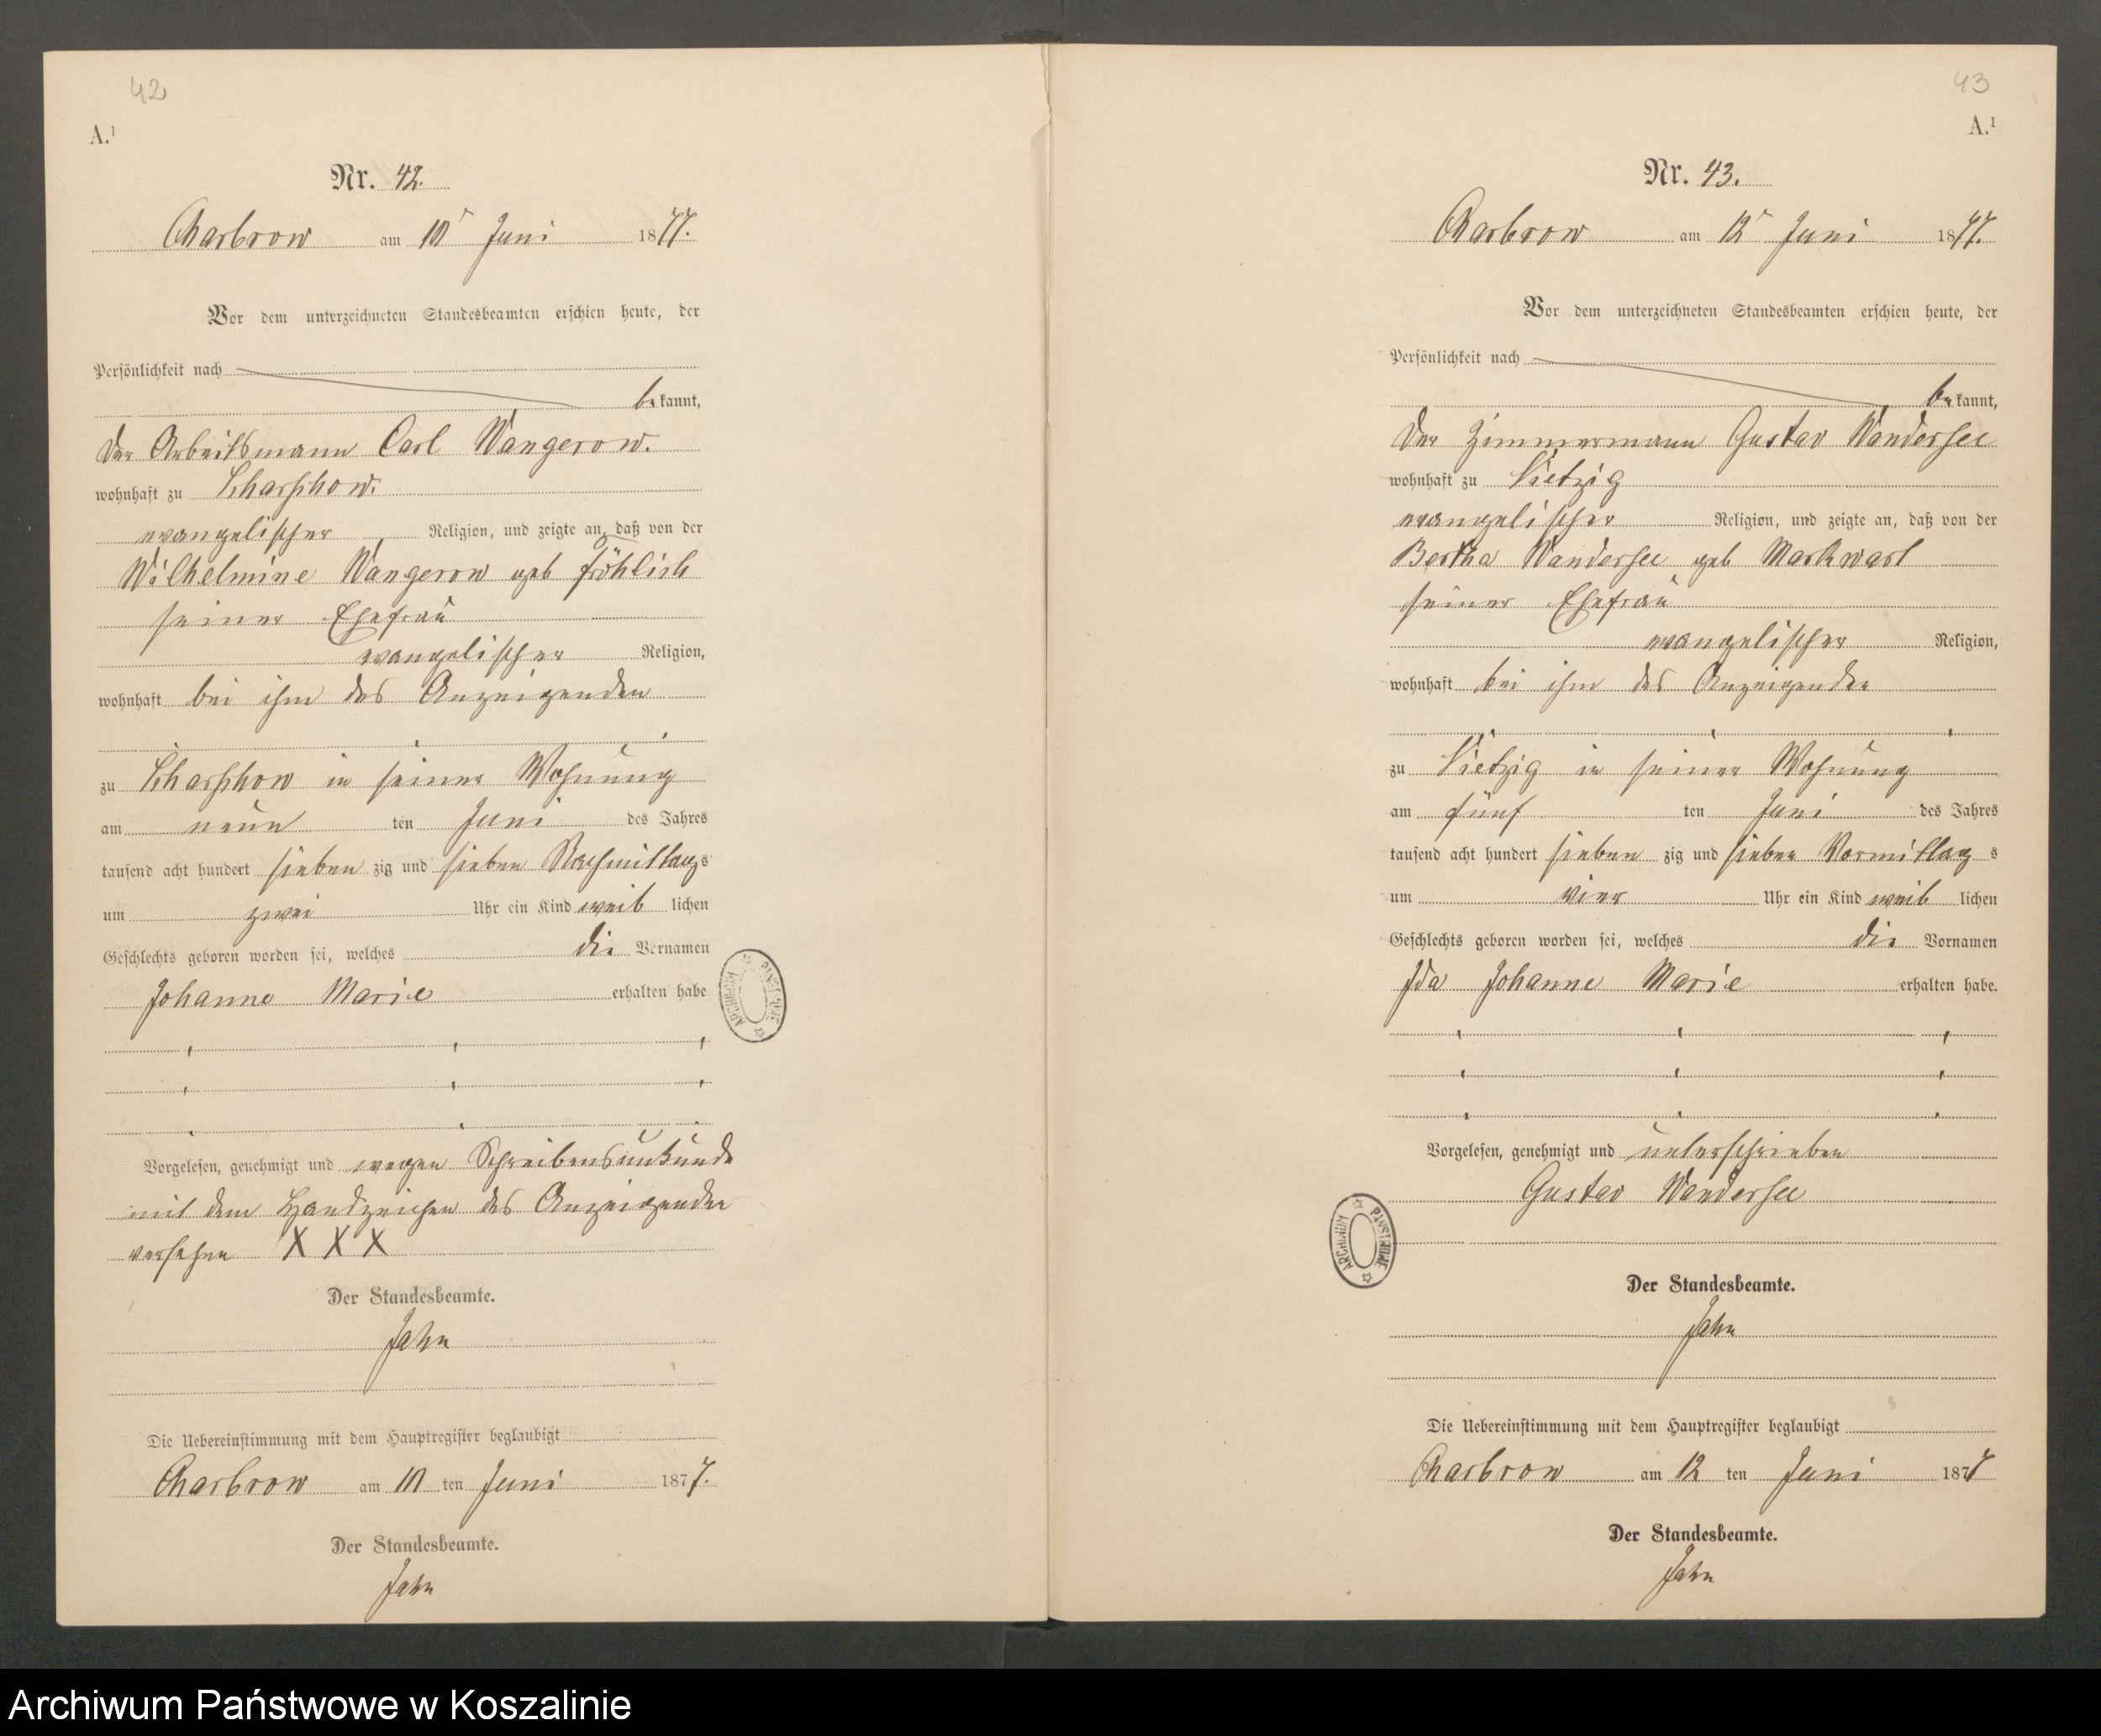 42
A.¹
Nr. 42.
Charbrow am 10ᵗ Juni 1877.
Vor dem unterzeichneten Standesbeamten erschien heute, der
Persönlichkeit nach
bekannt,
der Arbeitsmann Carl Wangerow.
wohnhaft zu Scharschow.
evangelischer Religion, und zeigte an, daß von der
Wilhelmine Wangerow geb Fröhlich
seiner Ehefrau
evangelischer Religion,
wohnhaft bei ihm des Anzeigenden
zu Scharschow in seiner Wohnung
am neun ten Juni des Jahres
tausend acht hundert sieben zig und sieben Nachmittags
um zwei Uhr ein Kind weib lichen
Geschlechts geboren worden sei, welches die Vornamen
Johanne Marie erhalten habe
Vorgelesen, genehmigt und wegen Schreibensunkunde
mit dem Handzeichen des Anzeigenden
versehen X X X
Der Standesbeamte.
Jahn
Die Uebereinstimmung mit dem Hauptregister beglaubigt
Charbrow am 10 ten Juni 1877.
Der Standesbeamte.
Jahn
ARCHIWUM PAŃSTWOWE
43
A.¹
Nr. 43.
Charbrow am 12ᵗ Juni 1877.
Vor dem unterzeichneten Standesbeamten erschien heute, der
Persönlichkeit nach
bekannt,
der Zimmermann Gustav Wandersee
wohnhaft zu Vietzig
evangelischer Religion, und zeigte an, daß von der
Bertha Wandersee geb Markwart
seiner Ehefrau
evangelischer Religion,
wohnhaft bei ihm des Anzeigenden
zu Vietzig in seiner Wohnung
am fünf ten Juni des Jahres
tausend acht hundert sieben zig und sieben Vormittag s
um vier Uhr ein Kind weib lichen
Geschlechts geboren worden sei, welches die Vornamen
Ida Johanne Marie erhalten habe.
Vorgelesen, genehmigt und unterschrieben
Gustav Wandersee
ARCHIWUM PAŃSTWOWE
Der Standesbeamte.
Jahn
Die Uebereinstimmung mit dem Hauptregister beglaubigt
Charbrow am 12 ten Juni 1877
Der Standesbeamte.
Jahn
Archiwum Państwowe w Koszalinie